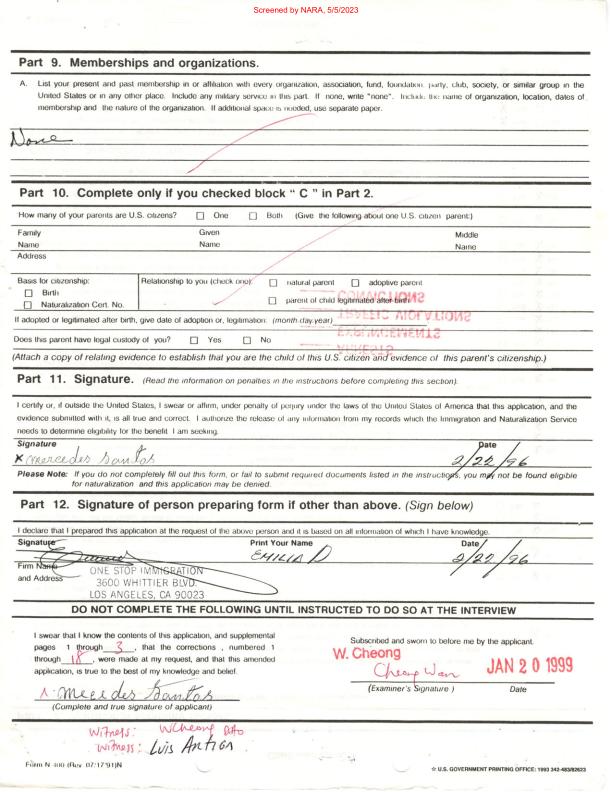 Screened by NARA, 5/5/2023
Part 9. Memberships and organizations.
A. List your present and past membership in or affiliation with every organization, association, fund, foundation, party, club, society, or similar group in the
United States or in any other place. Include any military service in this part. If none, write "none". Include the name of organization, location, dates of
membership and the nature of the organization. If additional space is needed, use separate paper.
None
Part 10. Complete only if you checked block " C " in Part 2.
How many of your parents are U.S. citizens? ☐ One ☐ Both (Give the following about one U.S. citizen parent:)
Family Name Given Name Middle Name
Address
Basis for citizenship: Relationship to you (check one): ☐ natural parent ☐ adoptive parent
☐ Birth
☐ Naturalization Cert. No. ☐ parent of child legitimated after birth
CONVICTIONS
If adopted or legitimated after birth, give date of adoption or, legitimation: (month day year)
TRAFFIC VIOLATIONS
EXPUNGEMENTS
Does this parent have legal custody of you? ☐ Yes ☐ No
ARRESTS
(Attach a copy of relating evidence to establish that you are the child of this U.S. citizen and evidence of this parent's citizenship.)
Part 11. Signature. (Read the information on penalties in the instructions before completing this section).
I certify or, if outside the United States, I swear or affirm, under penalty of perjury under the laws of the United States of America that this application, and the
evidence submitted with it, is all true and correct. I authorize the release of any information from my records which the Immigration and Naturalization Service
needs to determine eligibility for the benefit I am seeking.
Signature Date
x mercedes Santos 2/22/96
Please Note: If you do not completely fill out this form, or fail to submit required documents listed in the instructions, you may not be found eligible
for naturalization and this application may be denied.
Part 12. Signature of person preparing form if other than above. (Sign below)
I declare that I prepared this application at the request of the above person and it is based on all information of which I have knowledge.
Signature Print Your Name Date
EMILIA D 2/22/96
Firm Name and Address
ONE STOP IMMIGRATION
3600 WHITTIER BLVD.
LOS ANGELES, CA 90023
DO NOT COMPLETE THE FOLLOWING UNTIL INSTRUCTED TO DO SO AT THE INTERVIEW
I swear that I know the contents of this application, and supplemental
pages 1 through 3, that the corrections, numbered 1
through 18, were made at my request, and that this amended
application, is true to the best of my knowledge and belief.
mecedes Santos
(Complete and true signature of applicant)
Subscribed and sworn to before me by the applicant.
W. Cheong
Cheong Wan JAN 20 1999
(Examiner's Signature) Date
Witness: WCheong
Witness: Luis Antiga
Form N-400 (Rev. 07/17/91)N
☆ U.S. GOVERNMENT PRINTING OFFICE: 1993 342-483/82623